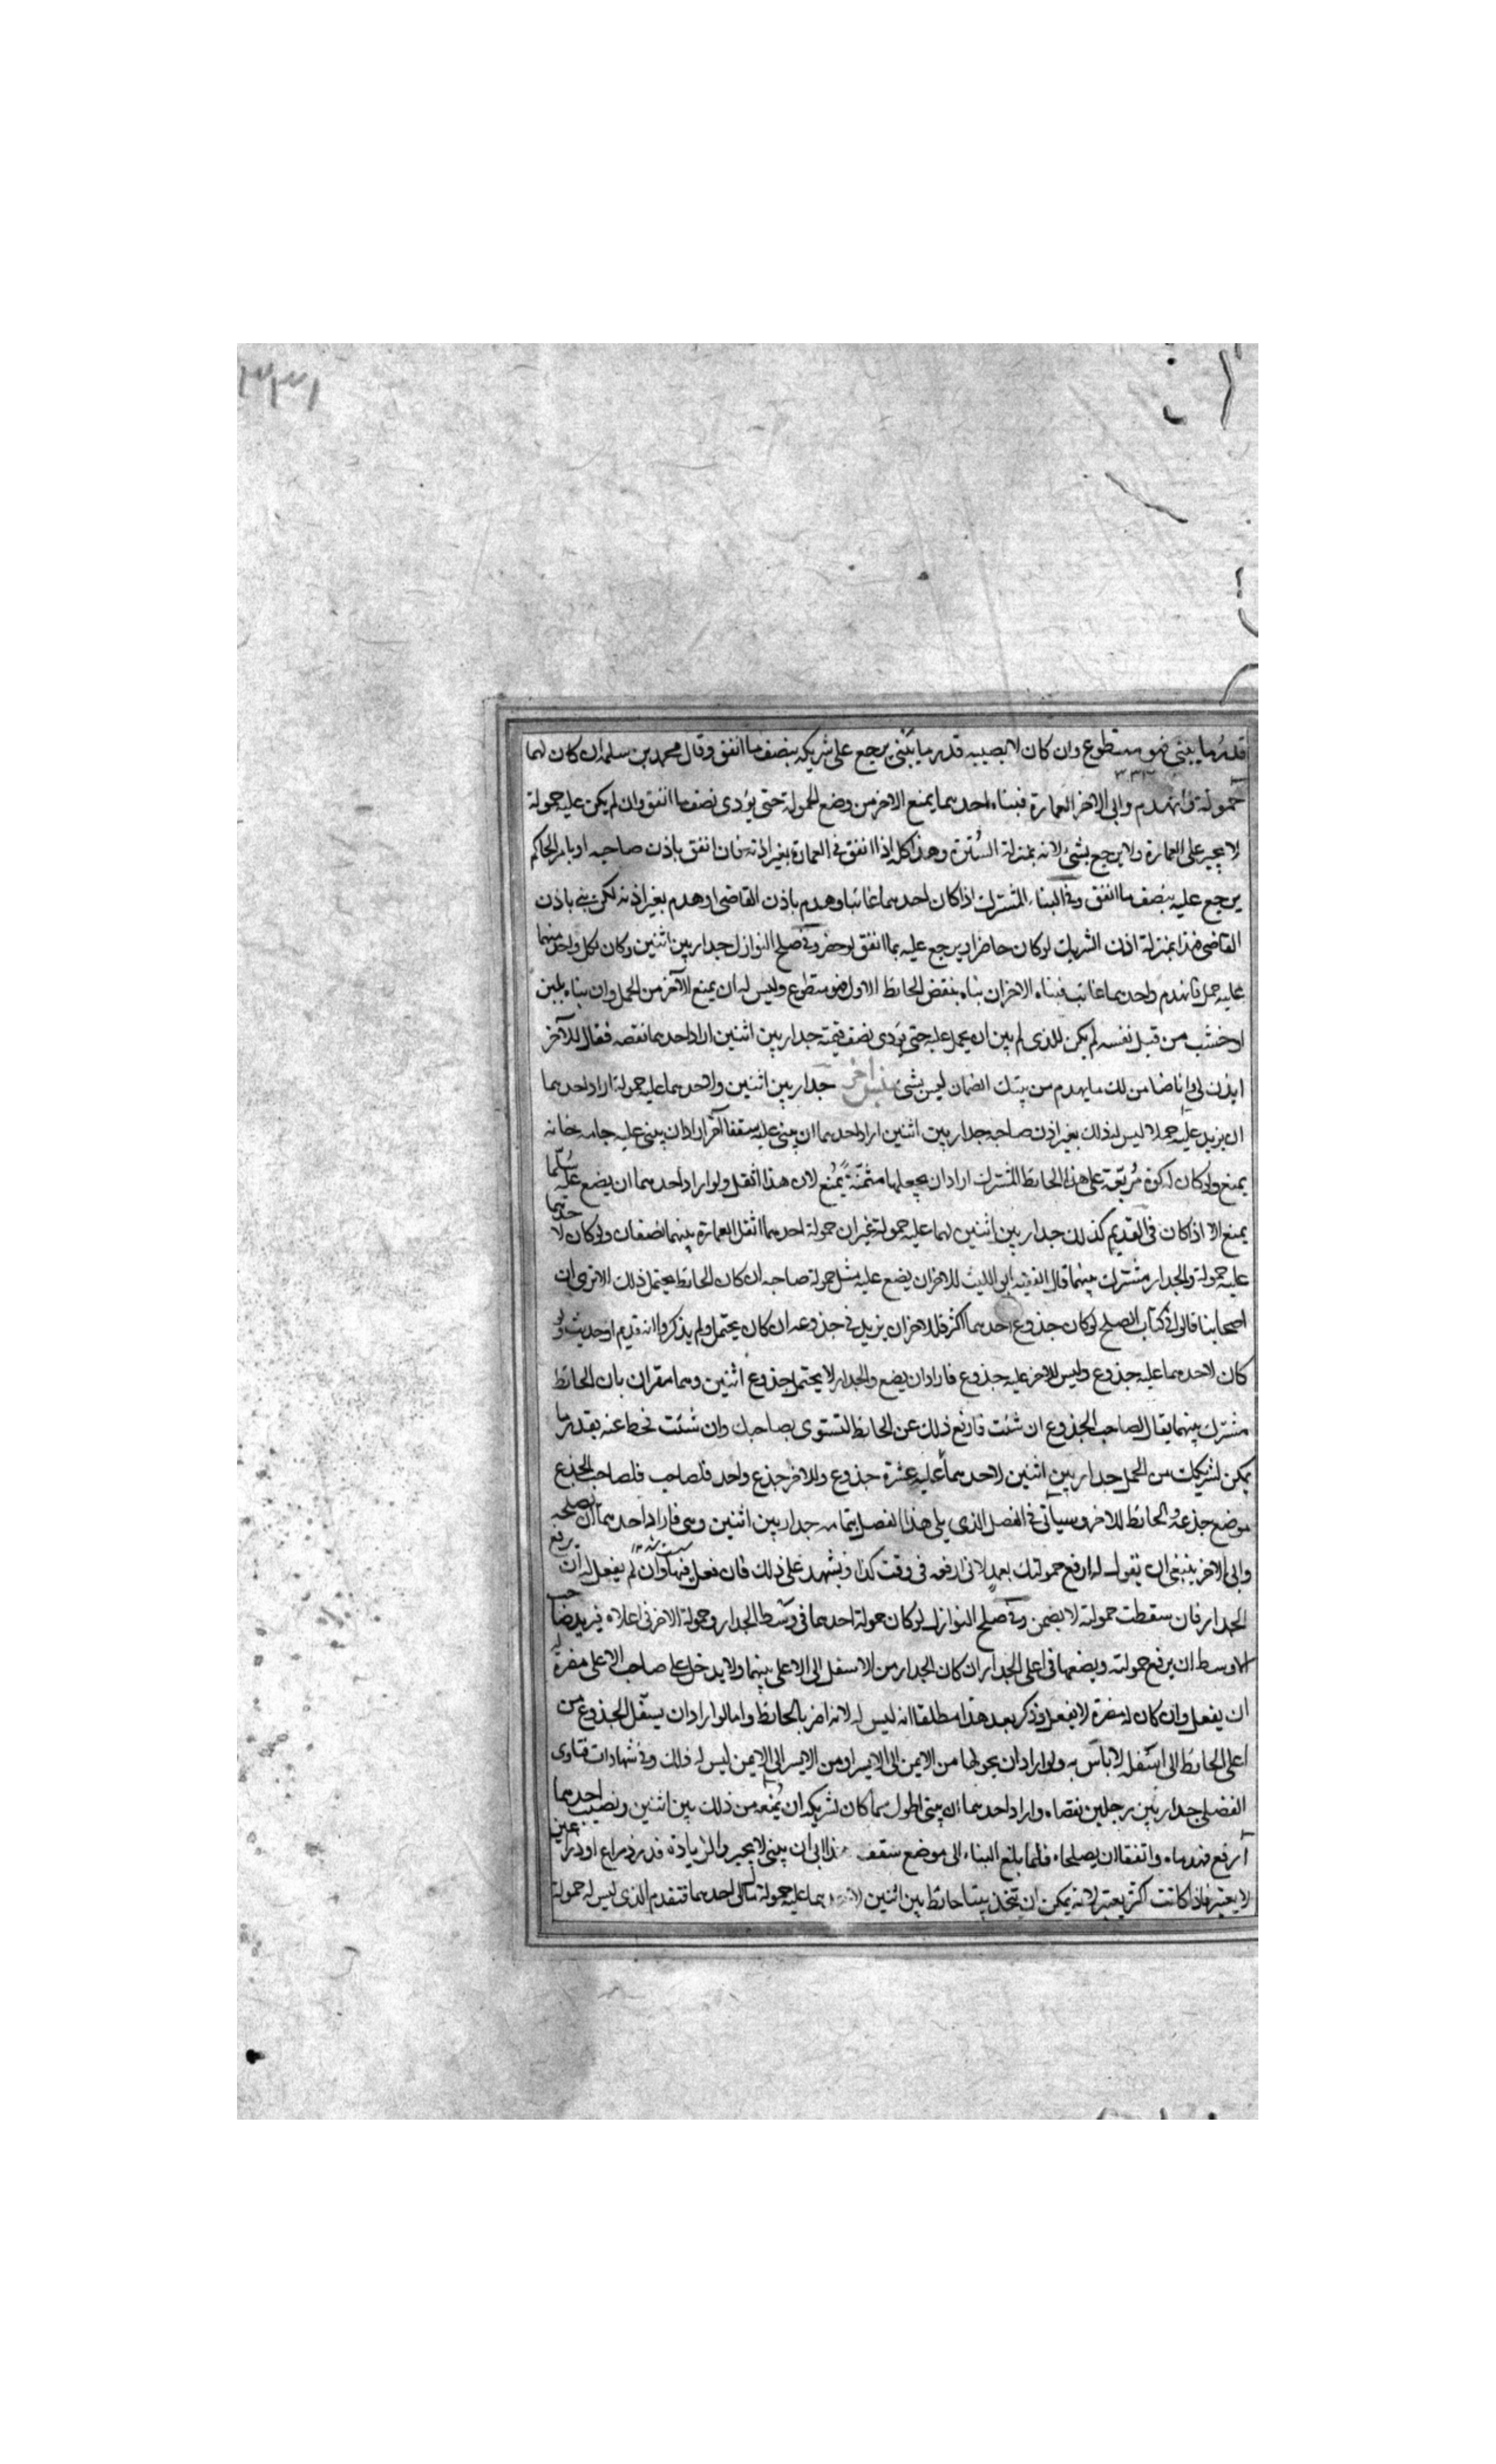 ٣٣١
قدر ما يبنى فهو متطوع وان كان لا يصيبه قدر ما يبنى يرجع على شريكه بنصف ما انفق وقال محمد بن سلمة ان كان لهما
حمولة فانهدم وابى الاخر العمارة فبناه احدهما يمنع الاخر من وضع الحمولة حتى يؤدى نصف ما انفق وان لم يكن عليه حمولة
لا يجبر على العمارة ولا يرجع بشئ لانه بمنزلة السترة وهذا كله اذا انفق فى العمارة بغير اذنه فان انفق باذن صاحبه او بامر الحاكم
يرجع عليه بنصف ما انفق وفى البناء المشترك اذا كان احدهما غائبا وهدم باذن القاضى او هدم بغير اذنه لكن بنى باذن
القاضى فهذا بمنزلة اذن الشريك لو كان حاضرا ويرجع عليه بما انفق لو حضر وفى صلح النوازل جدار بين اثنين وكان لكل واحد منهما
عليه حمل فانهدم واحدهما غائب فبناه الاخر ان بناه بنقض الحائط الاول فهو متطوع وليس له ان يمنع الآخر من الحمل وان بناه بلبن
او خشب من قبل نفسه لم يكن للذى لم يبن ان يحمل عليه حتى يؤدى نصف قيمته جدار بين اثنين اراد احدهما نقضه فقال للآخر
ايذن لى وانا ضامن لك ما يهدم من بيتك الضمان ليس بشئ جدار بين اثنين واحدهما عليه حمولة اراد احدهما
ان يزيد عليه حملا ليس له ذلك بغير اذن صاحبه جدار بين اثنين اراد احدهما ان يبنى عليه سقفا آخر او اراد ان يبنى عليه جامه خانه
يمنع ولو كان له كوة مربعة على هذا الحائط المشترك اراد ان يجعلها مثمنة يمنع لان هذا اثقل ولو اراد احدهما ان يضع عليه سلما
يمنع الا اذا كان فى القديم كذلك جدار بين اثنين لهما عليه حمولة غير ان حمولة احدهما اثقل العمارة بينهما نصفان ولو كان لاحدهما
عليه حمولة والجدار مشترك بينهما قال الفقيه ابو الليث للاخر ان يضع عليه مثل حمولة صاحبه ان كان الحائط يحتمل ذلك الا ترى ان
اصحابنا قالوا فى كتاب الصلح لو كان جذوع احدهما اكثر فللاخر ان يزيد فى جذوعه ان كان يحتمل ولم يذكروا انه قديم او حديث ولو
كان لاحدهما عليه جذوع وليس للاخر عليه جذوع فاراد ان يضع والجدار لا يحتمل جذوع اثنين وهما مقران بان الحائط
مشترك بينهما يقال لصاحب الجذوع ان شئت فارفع ذلك عن الحائط لتستوى بصاحبك وان شئت فحط عنه بقدر ما
يمكن لشريكك من الحمل جدار بين اثنين لاحدهما عليه عشرة جذوع وللاخر جذع واحد فلصاحب فلصاحب الجذع
موضع جذعه والحائط للاخر وسيأتى فى الفصل الذى يلى هذا الفصل بتمامه جدار بين اثنين وهى فاراد احدهما ان يصلحه
وابى الاخر ينبغى ان يقول له ارفع حمولتك بعمد لانى ارفعه فى وقت كذا ويشهد على ذلك فان فعل فبها وان لم يفعل له ان يرفع
الجدار فان سقطت حمولته لا يضمن وفى صلح النوازل لو كان حمولة احدهما فى وسط الجدار وحمولة الاخر فى اعلاه فيريد صاحب
الاوسط ان يرفع حمولته ويضعها فى اعلى الجدار ان كان الجدار من الاسفل الى الاعلى بينهما ولا يدخل على صاحب الاعلى مضرة له
ان يفعل وان كان له مضرة لا يفعل وذكر بعد هذا مطلقا انه ليس له لانه اضر بالحائط واما لو اراد ان يسفل الجذوع من
اعلى الحائط الى اسفله لا باس به ولو اراد ان يحولها من الايمن الى الايسر او من الايسر الى الايمن ليس له ذلك وفى شهادات فتاوى
الفضلى جدار بين رجلين نقضاه واراد احدهما ان يبنى اطول مما كان لشريكه ان يمنعه من ذلك بين اثنين ونصيب احدهما
ارفع فهدماه واتفقا ان يصلحاه فلما بلغ البناء الى موضع سقف هذا ابى ان يبنى لا يجبر والزيادة قدر ذراع او ذراعين
لا يعتبر فاذا كانت اكثر يعتبر لانه يمكن ان يتخذ بيتا حائط بين اثنين لاحدهما عليه حمولة مال الى احدهما فتقدم الذى ليس له حمولة